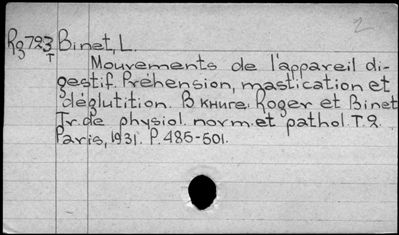 2
Rg723 Binet, L.
T Mouvements de l'appareil di-
gestif. Préhension, mastication et
déglutition. В книге: Roger et Binet
Tr. de physiol. norm. et pathol. T. 2.
Paris, 1931. P. 485-501.